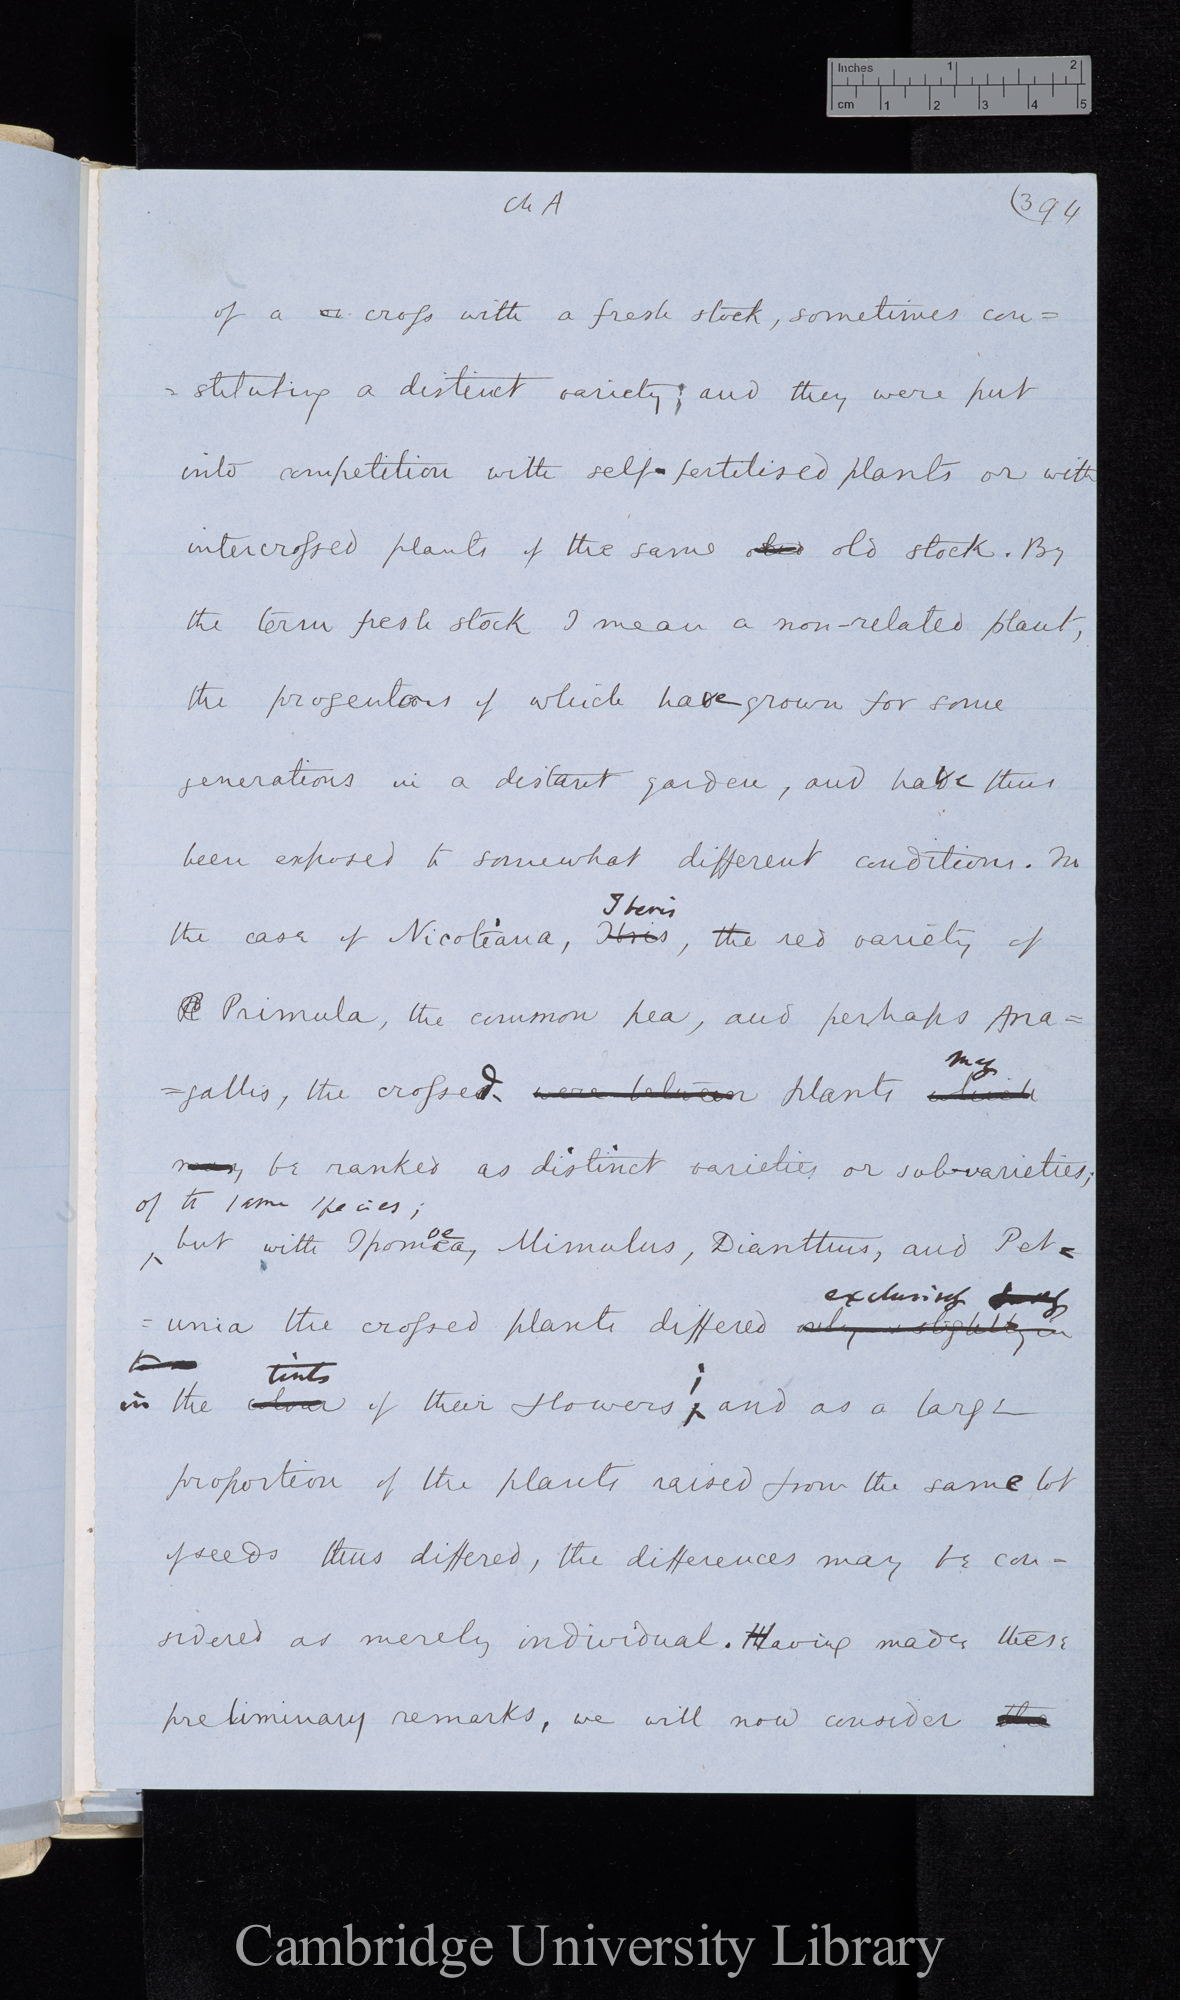 Inches 1 2
cm 1 2 3 4 5
Ch A
(394
of a a cross with a fresh stock, sometimes con=
=stituting a distinct variety; and they were put
into competition with self-fertilised plants or with
intercrossed plants of the same old stock. By
the term fresh stock I mean a non-related plant,
the progenitors of which have grown for some
generations in a distant garden, and have thus
been exposed to somewhat different conditions. In
Iberis
the case of Nicotiana, Ibris, the red variety of
Primula, the common pea, and perhaps Ana=
may
=gallis, the crossed were between plants which
may be ranked as distinct varieties or sub-varieties;
of the same species;
but with Ipomœa, Mimulus, Dianthus, and Pet=
exclusively
=unia the crossed plants differed only slightly in
tints
in the colour of their flowers; and as a large
proportion of the plants raised from the same lot
of seeds thus differed, the differences may be con-
sidered as merely individual. Having made these
preliminary remarks, we will now consider the
Cambridge University Library